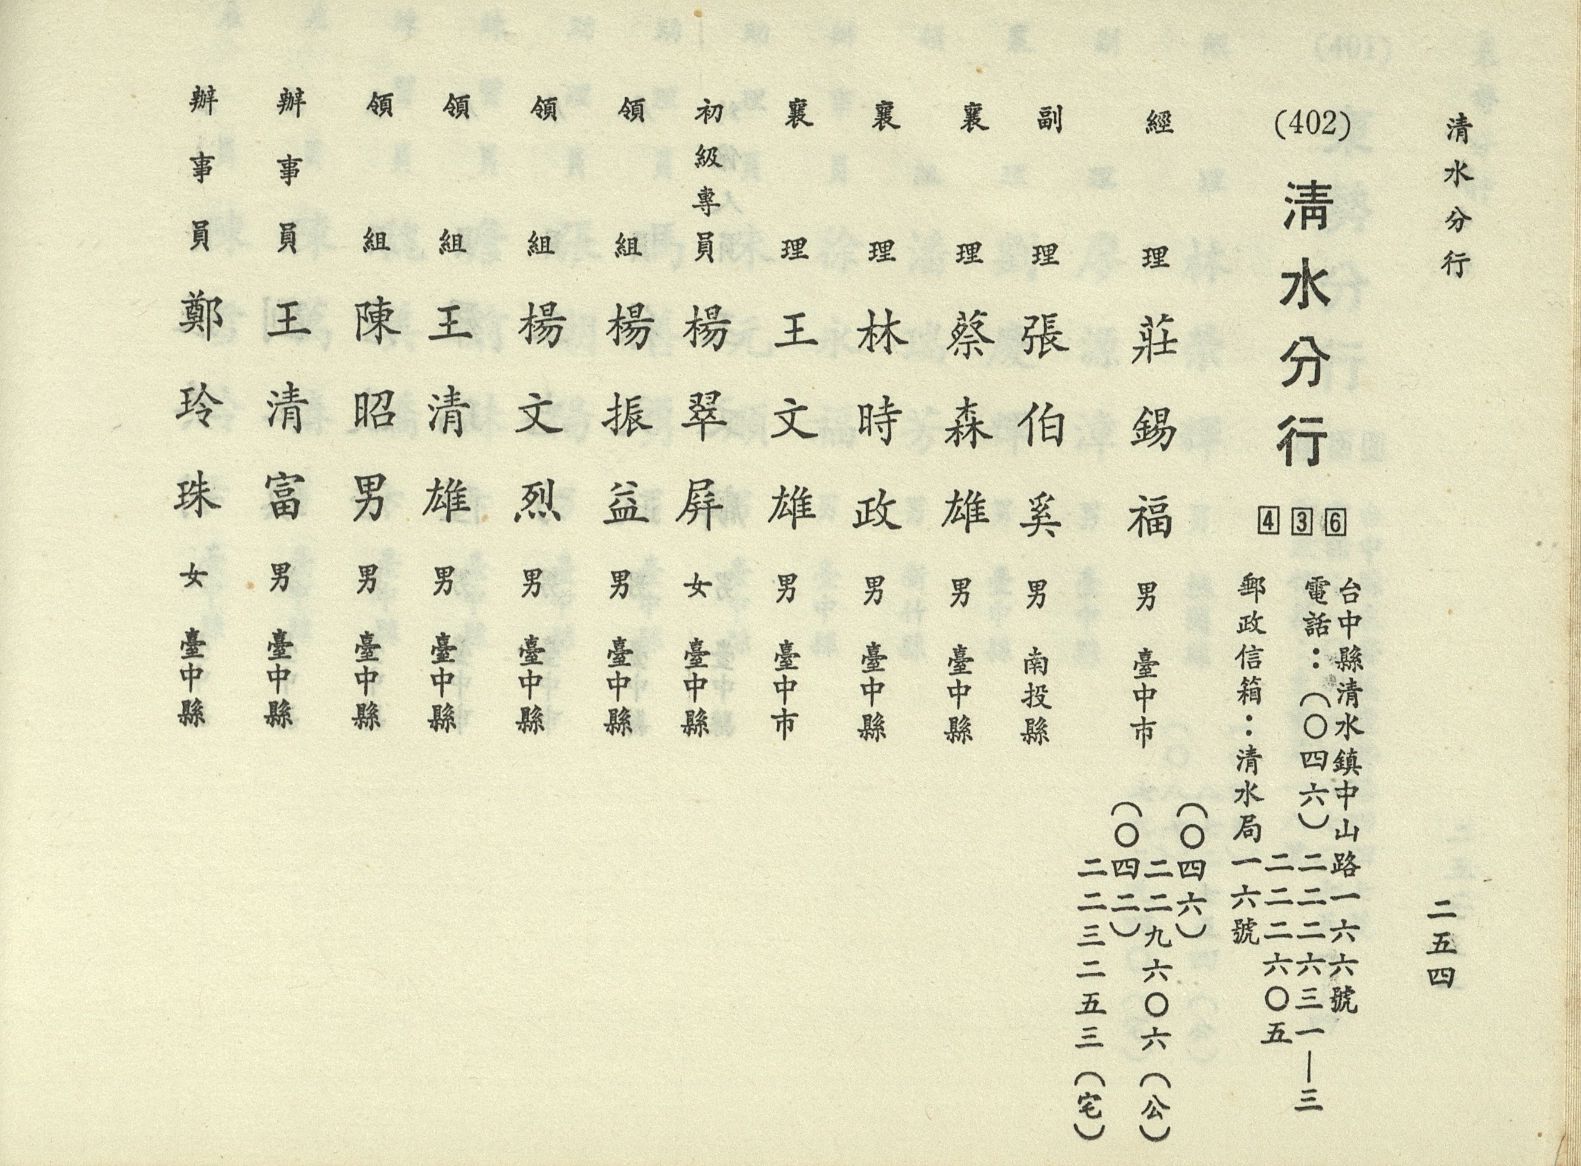 清水分行
二五四
(402)清水分行
436
台中縣清水鎮中山路一六六號
電話：(〇四六)二二二六三一—三
二二二六〇五
郵政信箱：清水局一六號
經理 莊錫福 男 臺中市
(〇四六)
二二九六〇六(公)
(〇四二)
二二三二五三(宅)
副理 張伯奚 男 南投縣
襄理 蔡森雄 男 臺中縣
襄理 林時政 男 臺中縣
襄理 王文雄 男 臺中市
初級專員 楊翠屏 女 臺中縣
領組 楊振益 男 臺中縣
領組 楊文烈 男 臺中縣
領組 王清雄 男 臺中縣
領組 陳昭男 男 臺中縣
辦事員 王清富 男 臺中縣
辦事員 鄭玲珠 女 臺中縣